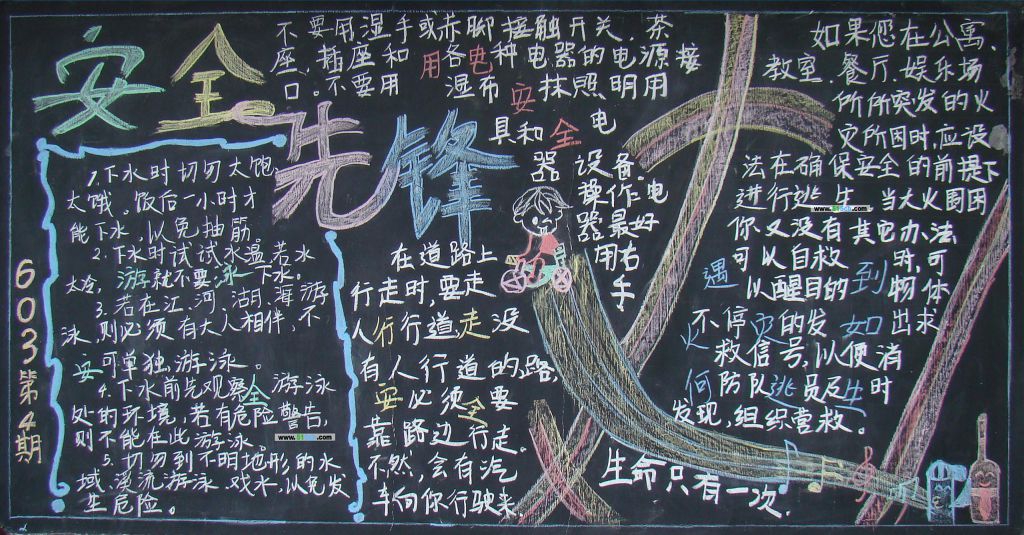 安全先锋
603第4期
1.下水时切勿太饱、
太饿。饭后一小时才
能下水,以免抽筋
2.下水时试试水温若水
太冷,就不要下水。
3.若在江、河、湖、海游
泳,则必须有大人相伴,不
可单独游泳。
4.下水前先观察游泳
处的环境,若有危险警告,
则不能在此游泳。
5.切勿到不明地形的水
域、溪流游泳、戏水,以免发
生危险。
游泳安全
不要用湿手或赤脚接触开关、茶
座、插座和各种电器的电源接
口。不要用湿布抹照明用
具和电
器设备。
操作电
器最好
用右
手
用电安全
在道路上
行走时,要走
人行道,没
有人行道的路,
必须要
靠路边行走。
不然,会有汽
车向你行驶来
行走安全
如果您在公寓、
教室、餐厅、娱乐场
所所突发的火
灾所困时,应设
法在确保安全的前提下
进行逃生 当大火围困
你又没有其它办法
可以自救时,可
以醒目的物体
不停的发出求
救信号,以便消
防队员及时
发现,组织营救。
遇到火灾如何逃生
生命只有一次.